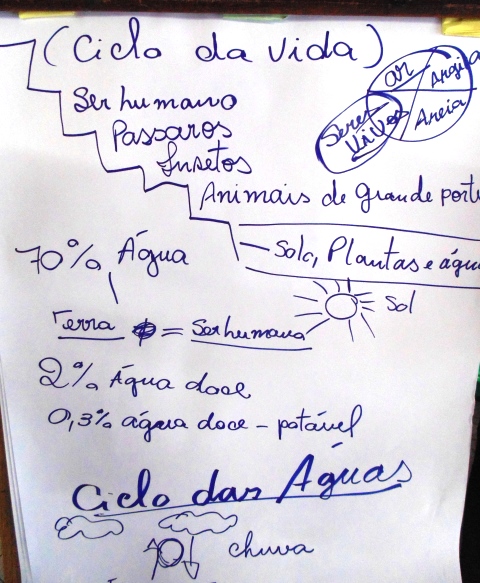 (Ciclo da vida)
ar
Argila
Areia
Seres
Vivos
Ser humano
Passaros
Insetos
Animais de Grande port
Solo, Plantas e água
70% Água
Sol
Terra = Ser humano
2% Água doce
0,3% água doce - potável
Ciclo das Águas
chuva